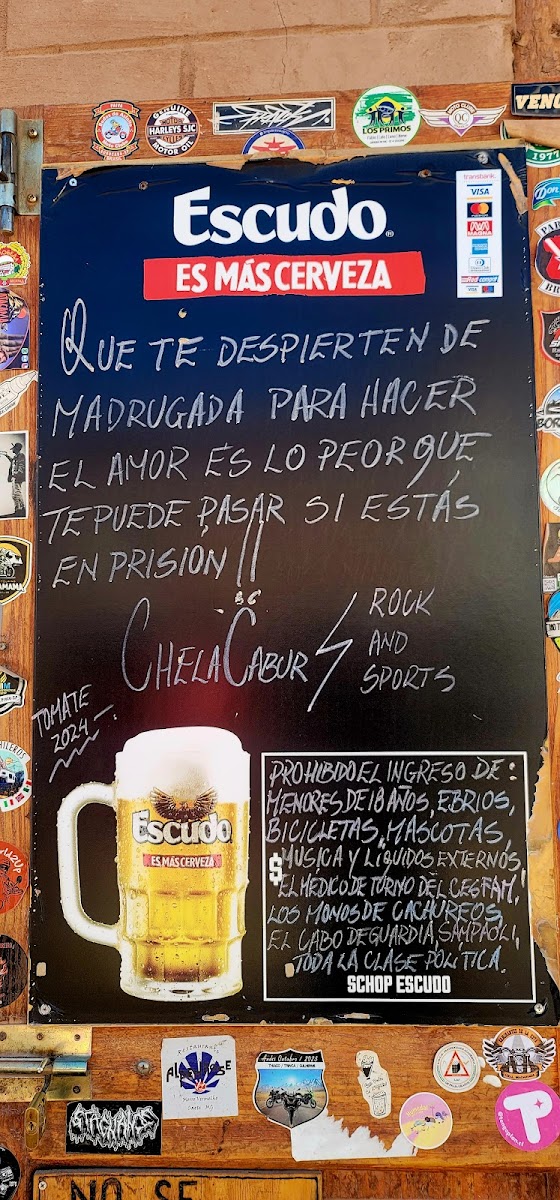 HARLEYS SJC
MOTOR OIL
LOS PRIMOS
QC
1977
transbank.
VISA
Escudo
ES MÁS CERVEZA
QUE TE DESPIERTEN DE
MADRUGADA PARA HACER
EL AMOR ES LO PEOR QUE
TE PUEDE PASAR SI ESTÁS
EN PRISIÓN !!
CHELACABURS
ROCK
AND
SPORTS
TOMATE
2024
Escudo
ES MÁS CERVEZA
PROHIBIDO EL INGRESO DE:
MENORES DE 18 AÑOS, EBRIOS,
BICICLETAS, MASCOTAS,
MUSICA Y LIQUIDOS EXTERNOS,
$
EL MEDICO DE TURNO DEL CESFAM,
LOS MONOS DE CACHUREOS,
EL CABO DE GUARDIA, SAMPAOLI,
TODA LA CLASE POLITICA.
SCHOP ESCUDO
NO SE